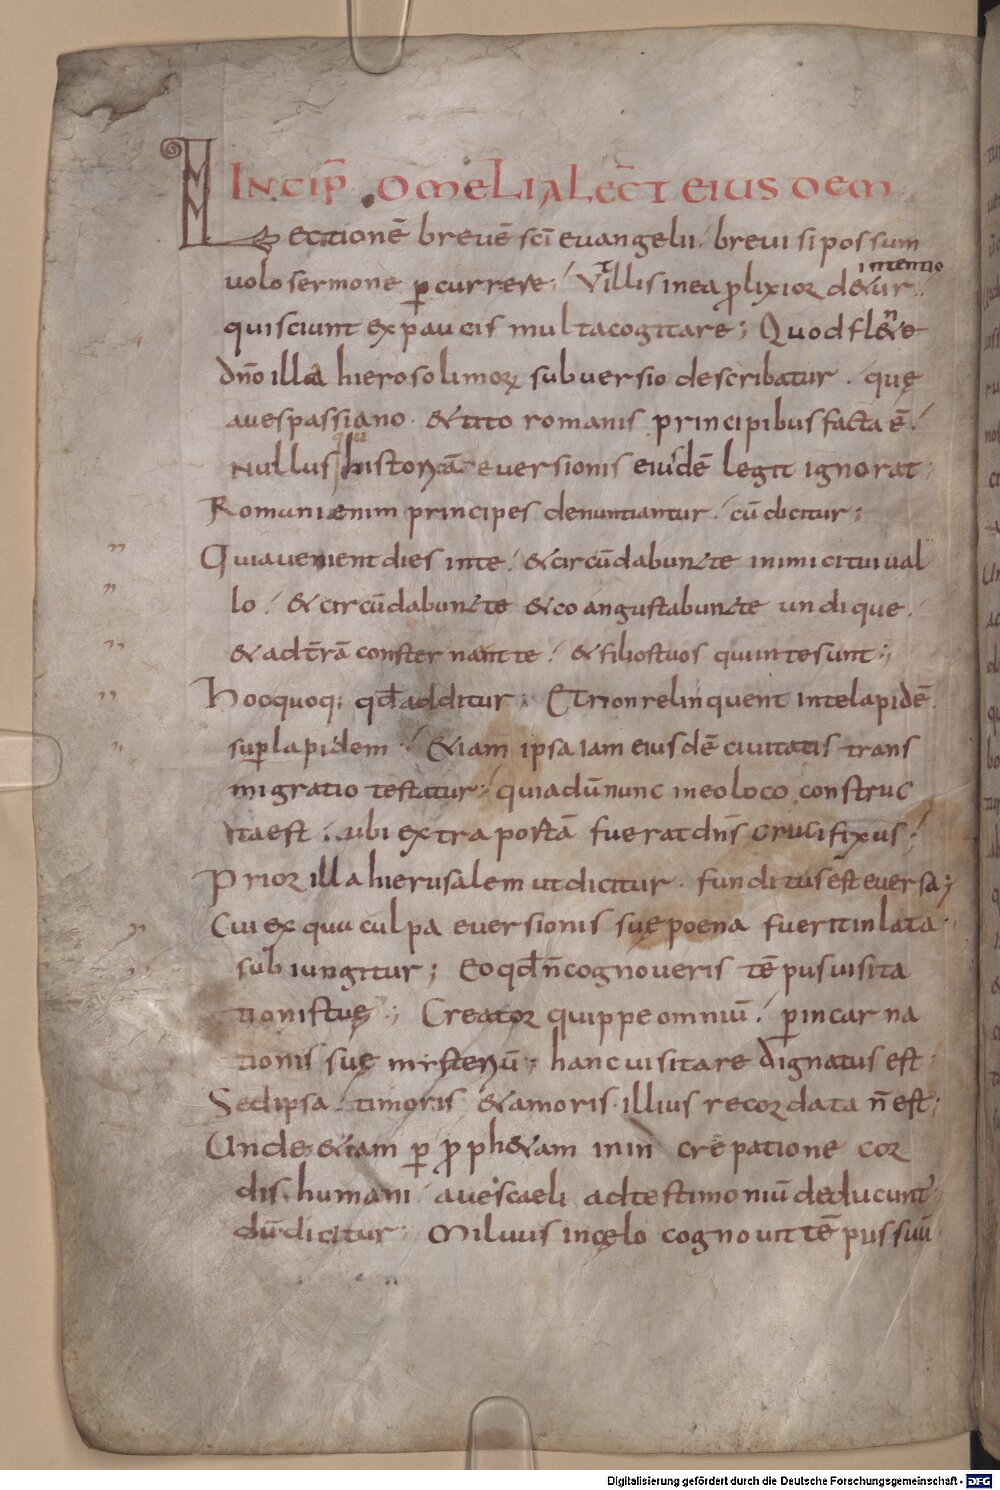 INCIP̄ OMELIA LEC̄T EIUSDEM
Lectionē brevē sc̄i evangelii. brevi si possum
volo sermone ꝑcurrere; Ut illis in ea ꝓlixior detur intentio
qui sciunt ex paucis multa cogitare; Quod flente
dn̄o illa hierosolimoꝝ subversio describatur. quę
a vespassiano. & tito romanis principibus facta ē.
Nullus qui historiā eversionis eiusdē legit ignorat;
Romani enim principes denuntiantur. cū dicitur;
Quia venient dies in te. & circūdabunt te inimici tui val
lo. & circūdabunt te & coangustabunt te undique.
& ad t̄rā consternant te. & filios tuos qui in te sunt;
Hoc quoq; qđ additur; Et non relinquent in te lapidē
suꝑ lapidem. &iam ipsa iam eiusdē civitatis trans
migratio testatur. quia dū nunc in eo loco construc
ta est. ubi extra portā fuerat dn̄s crucifixus.
Prior illa hierusalem ut dicitur. funditus est eversa;
Cui ex qua culpa eversionis suę poena fuerit inlata
subiungitur; Eo qđ n̄ cognoveris tēpus visita
tionis tuę; Creator quippe omniū. ꝑ incarna
tionis suę mysteriū; hanc visitare dignatus est;
Sed ipsa timoris & amoris illius recordata n̄ est;
Unde &iam ꝑ ꝓph&iam in increpatione cor
dis humani aves caeli ad testimoniū deducunt̄
dū dicitur. Milvus in cęlo cognovit tēpus suū.
Digitalisierung gefördert durch die Deutsche Forschungsgemeinschaft - DFG